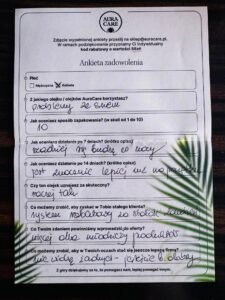 AURA
CARE
Zdjęcie wypełnionej ankiety prześlij na sklep@auracare.pl.
W ramach podziękowania przyznamy Ci indywidualny
kod rabatowy o wartości
Ankieta zadowolenia
Płeć
Mężczyzna Kobieta
Z jakiego olejku / olejków AuraCare korzystasz?
problemy ze snem
Jak oceniasz sposób zapakowania? (w skali od 1 do 10)
10
Jak oceniasz działanie po 7 dniach? (krótko opisz)
rzadziej się budzę w nocy
Jak oceniasz działanie po 14 dniach? (krótko opisz)
jest znacznie lepiej niż na początku
Czy ten olejek uznajesz za skuteczny?
raczej tak
Co możemy zrobić, aby zyskać w Tobie stałego klienta?
system rabatowy za
Co Twoim zdaniem powinniśmy wprowadzić do oferty?
więcej dla młodzieży produktów
Co możemy zrobić, aby w Twoich oczach stać się jeszcze lepszą firmą?
nie widzę żadnych - jesteście
Z góry dziękujemy za to, że pomagasz nam, lepiej pomagać innym.